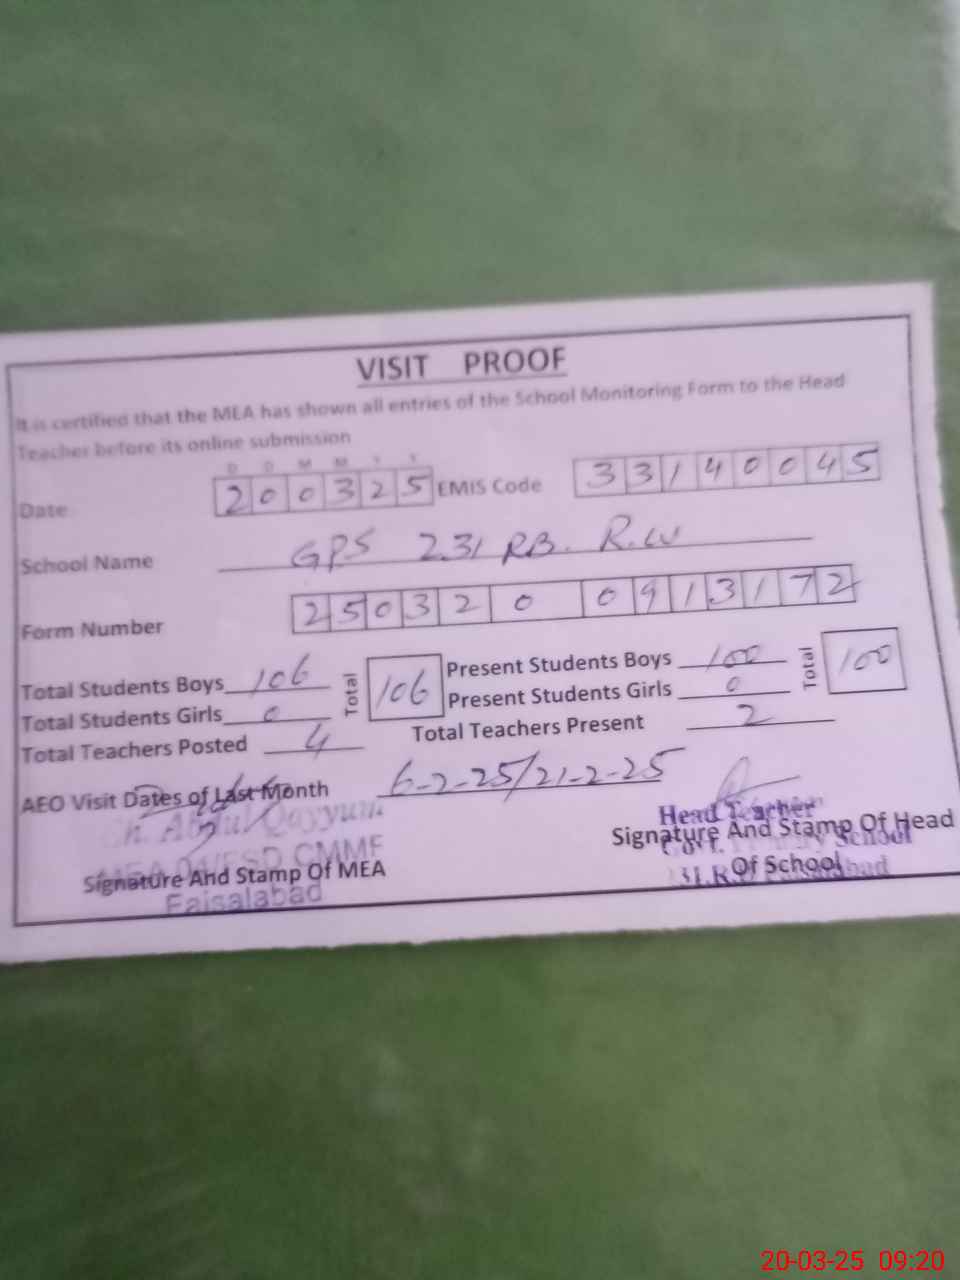 VISIT PROOF
It is certified that the MEA has shown all entries of the School Monitoring Form to the Head
Teacher before its online submission
D D M M Y Y
Date 200325 EMIS Code 33140045
School Name GPS 231 RB. R.W
Form Number 250320 0913172
Total Students Boys 106 Total 106 Present Students Boys 100 Total 100
Total Students Girls 0 Present Students Girls 0
Total Teachers Posted 4 Total Teachers Present 2
AEO Visit Dates of Last Month 6-2-25/21-2-25
Ch. Abdul Qayyum
MEA 04/FSD CMMF
Faisalabad
Signature And Stamp Of MEA
Head Teacher
Govt. Primary School
Signature And Stamp Of Head
Of School
20-03-25 09:20